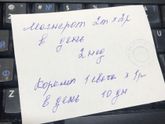 Мозжерот 2т х 3р
в день
2 нед
Корамп 1 свеча х 1р
в день 10 дн